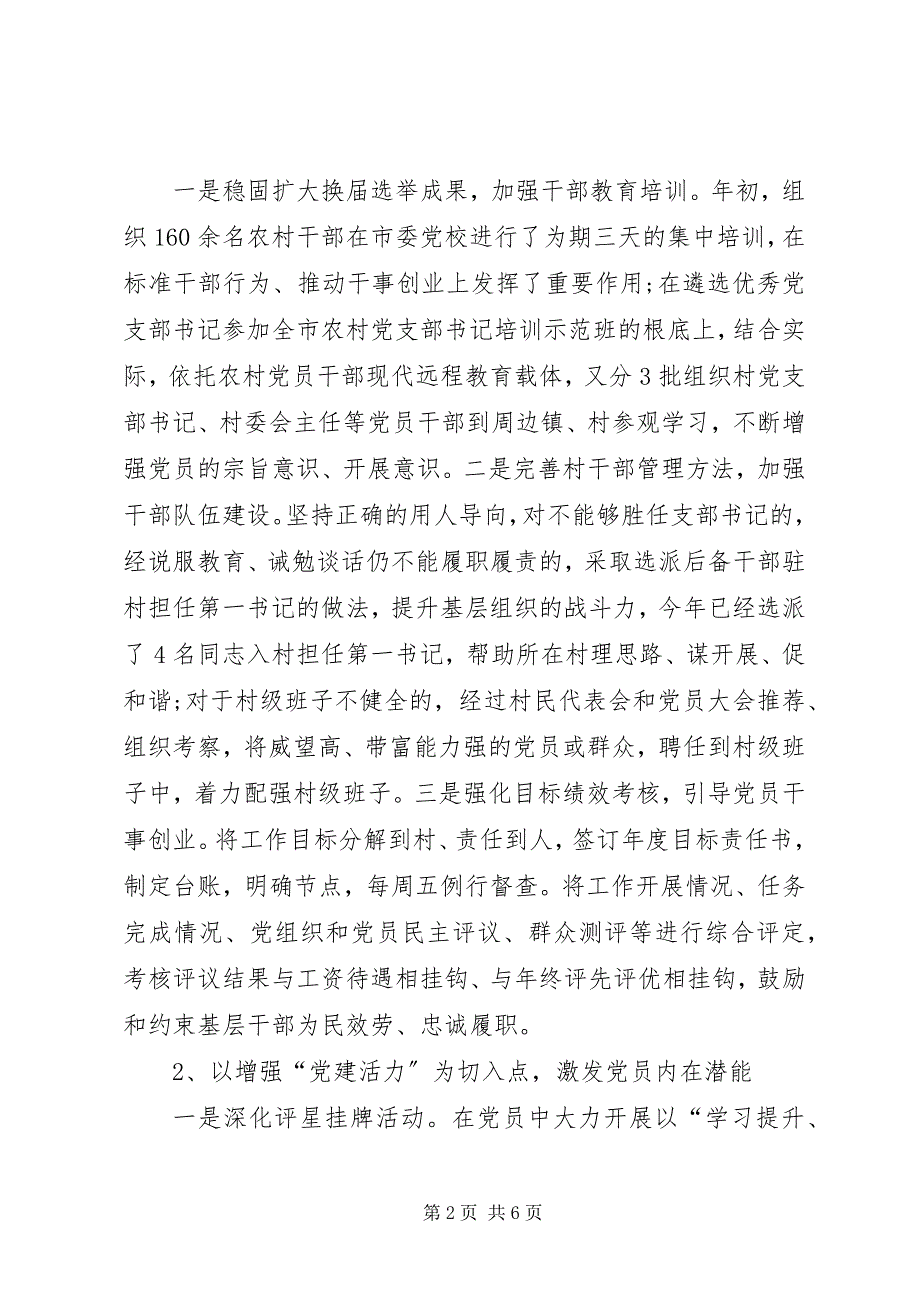 一是稳固扩大换届选举成果，加强干部教育培训。年初，组
织 160 余名农村干部在市委党校进行了为期三天的集中培训，在
标准干部行为、推动干事创业上发挥了重要作用;在遴选优秀党
支部书记参加全市农村党支部书记培训示范班的根底上，结合实
际，依托农村党员干部现代远程教育载体，又分 3 批组织村党支
部书记、村委会主任等党员干部到周边镇、村参观学习，不断增
强党员的宗旨意识、开展意识。二是完善村干部管理方法，加强
干部队伍建设。坚持正确的用人导向，对不能够胜任支部书记的，
经说服教育、诫勉谈话仍不能履职履责的，采取选派后备干部驻
村担任第一书记的做法，提升基层组织的战斗力，今年已经选派
了 4 名同志入村担任第一书记，帮助所在村理思路、谋开展、促
和谐;对于村级班子不健全的，经过村民代表会和党员大会推荐、
组织考察，将威望高、带富能力强的党员或群众，聘任到村级班
子中，着力配强村级班子。三是强化目标绩效考核，引导党员干
事创业。将工作目标分解到村、责任到人，签订年度目标责任书，
制定台账，明确节点，每周五例行督查。将工作开展情况、任务
完成情况、党组织和党员民主评议、群众测评等进行综合评定，
考核评议结果与工资待遇相挂钩、与年终评先评优相挂钩，鼓励
和约束基层干部为民效劳、忠诚履职。
2、以增强“党建活力〞为切入点，激发党员内在潜能
一是深化评星挂牌活动。在党员中大力开展以“学习提升、
第 2 页 共 6 页